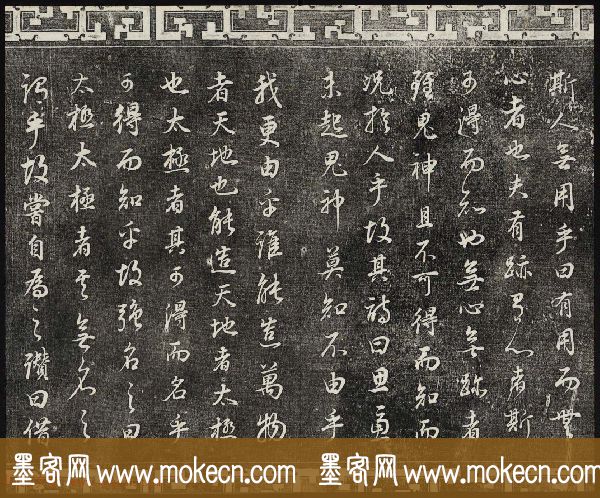 斯人無用乎曰有用而無
心者也夫有跡有心者斯
可得而知也無心無跡者
雖鬼神且不可得而知而
況於人乎故其詩曰思慮
未起鬼神莫知不由乎
我更由乎誰能造萬物
者天地也能造天地者太極
也太極者其可得而名乎
可得而知乎故強名之曰
太極太極者其無名之
謂乎故嘗自為之讚曰借
墨客网 www.mokecn.com 墨客网 www.mokecn.com